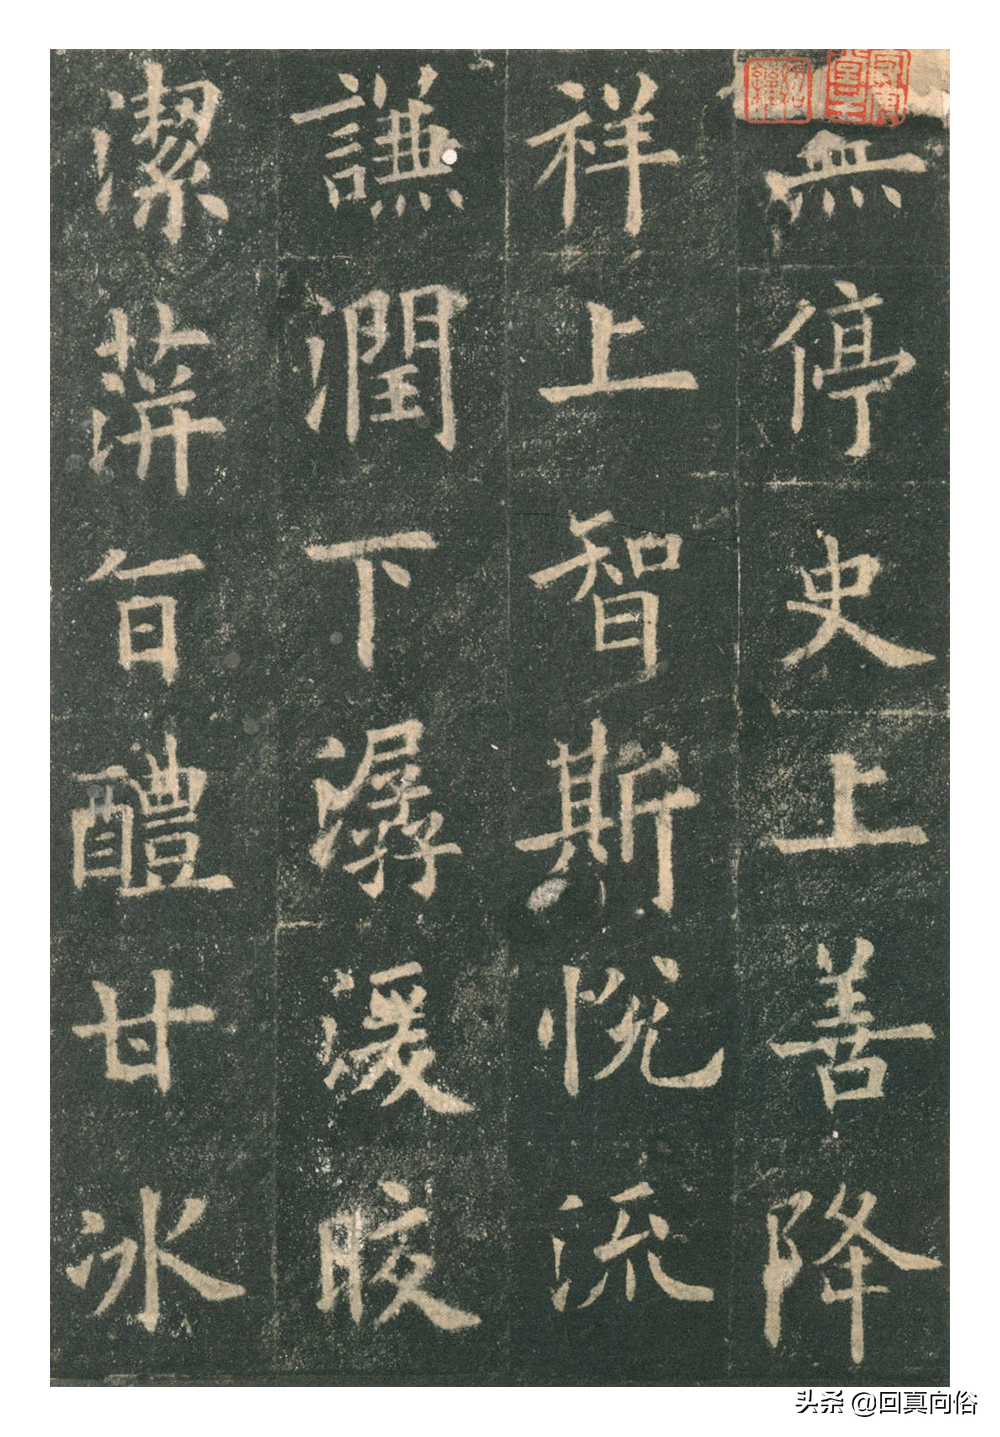 無停史上善降
祥上智斯悅流
謙潤下潺湲晈
潔蓱旨醴甘冰
头条 @回真向俗